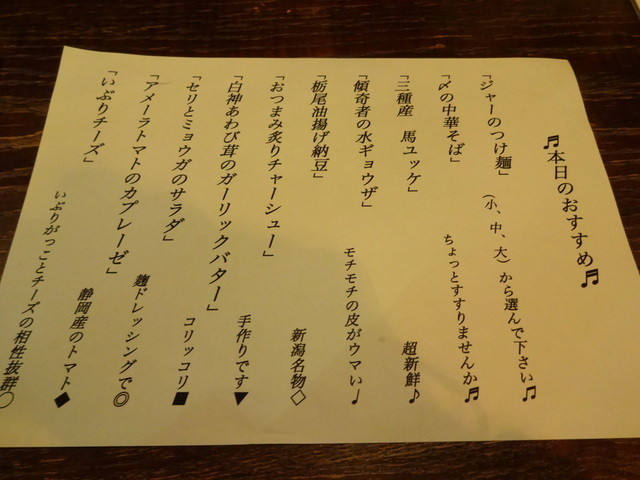 ♬本日のおすすめ♬
「ジャーのつけ麺」 (小、中、大)から選んで下さい♫
「〆の中華そば」 ちょっとすすりませんか♬
「三種産 馬ユッケ」 超新鮮♪
「傾奇者の水ギョウザ」 モチモチの皮がウマい♩
「栃尾油揚げ納豆」 新潟名物◇
「おつまみ炙りチャーシュー」 手作りです▼
「白神あわび茸のガーリックバター」 コリッコリ■
「セリとミョウガのサラダ」 麹ドレッシングで◎
「アメーラトマトのカプレーゼ」 静岡産のトマト◆
「いぶりチーズ」 いぶりがっことチーズの相性抜群○